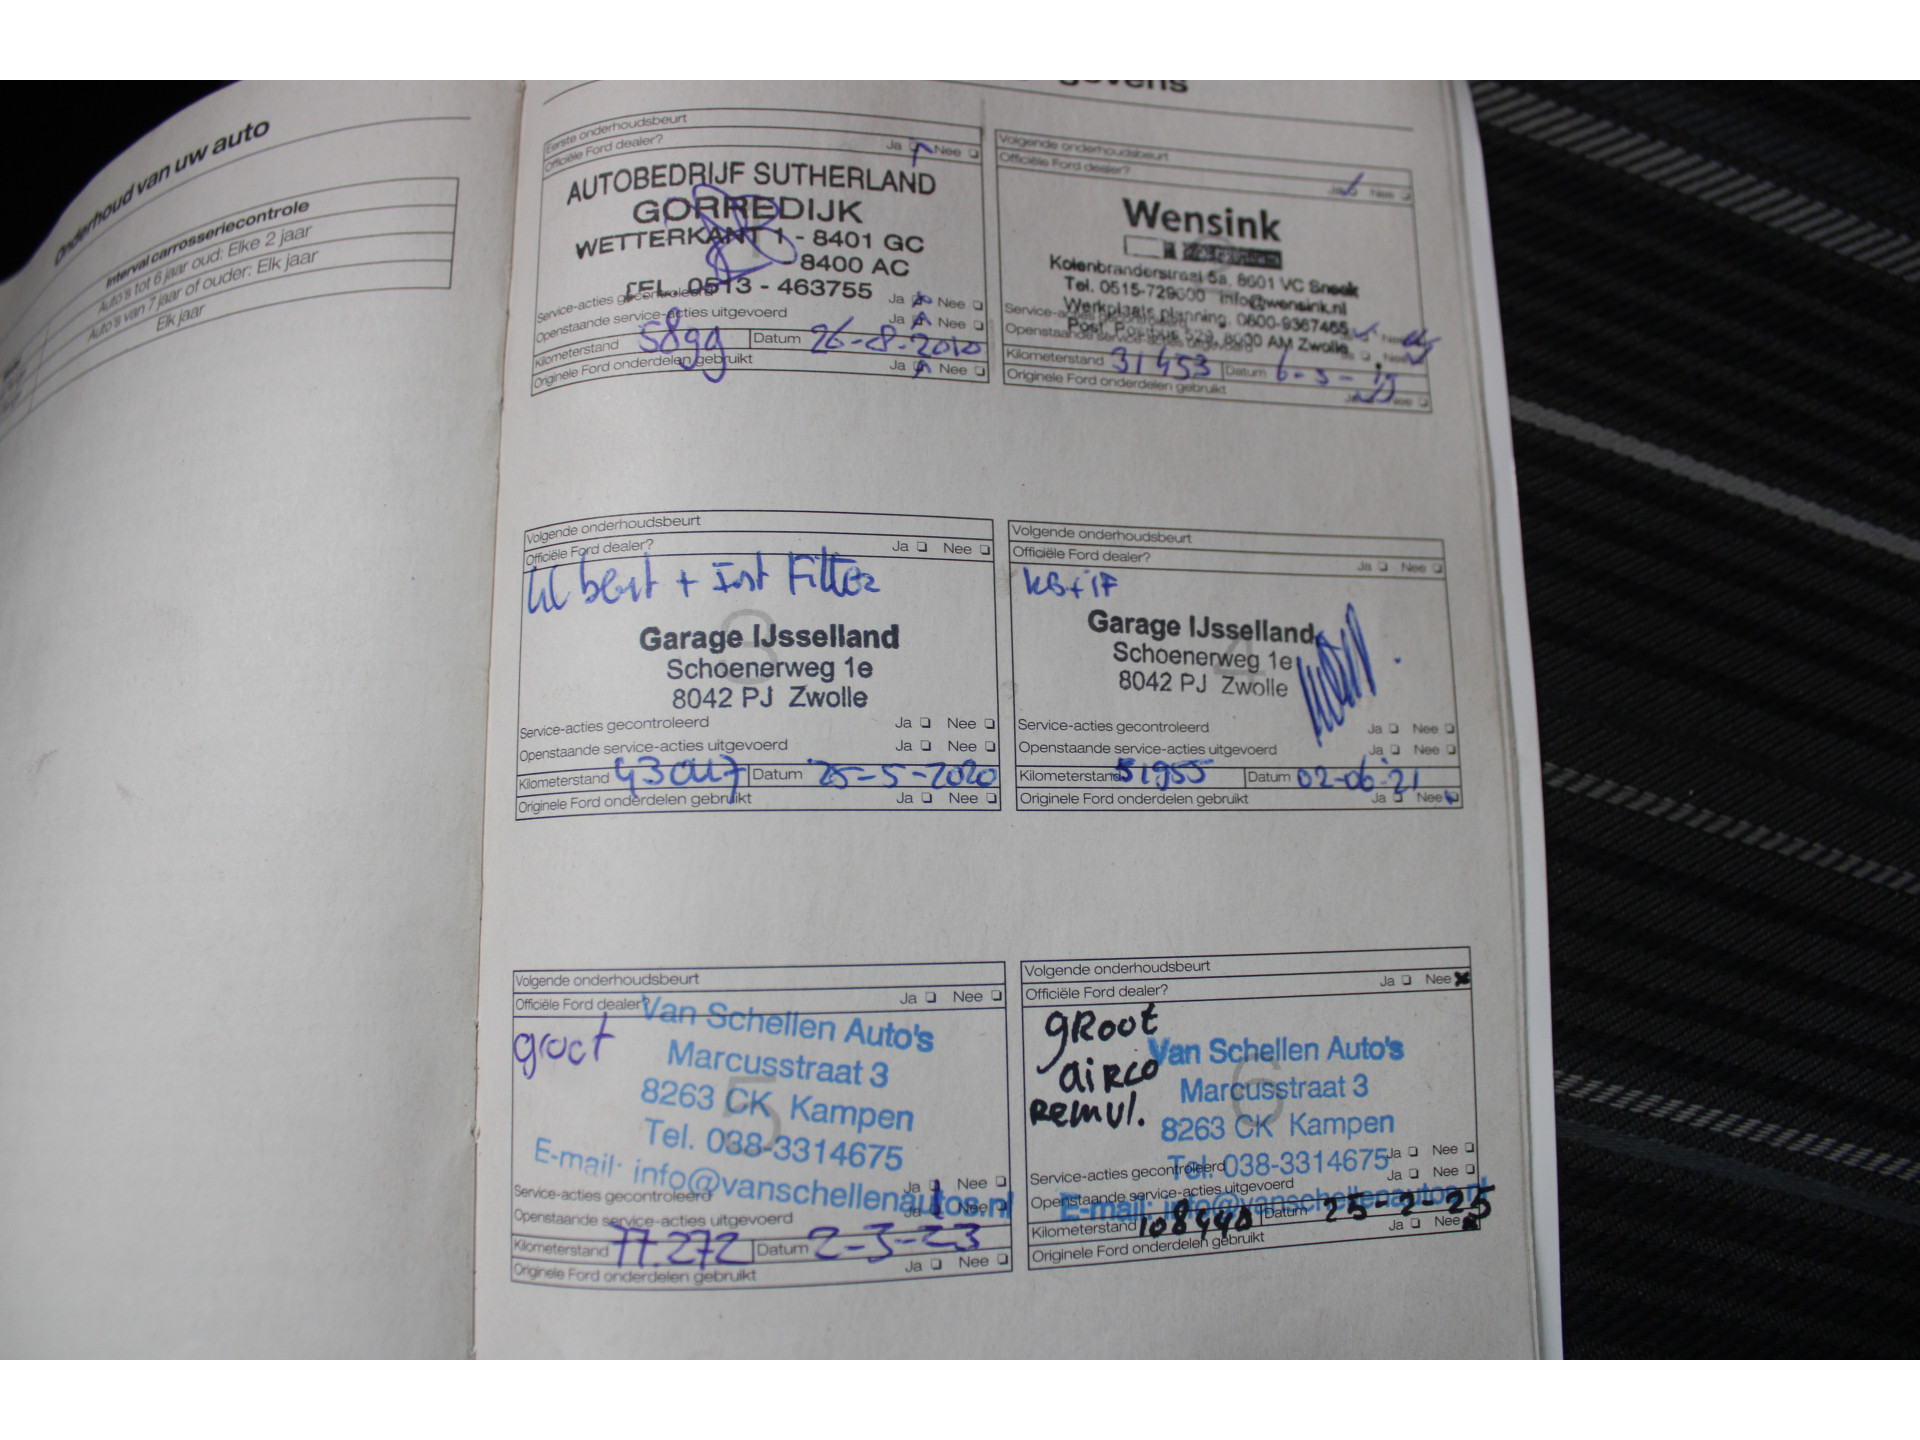 Onderhoud van uw auto
Interval carrosseriecontrole
Auto's tot 6 jaar oud: Elke 2 jaar
Auto's van 7 jaar of ouder: Elk jaar
Elk jaar
Eerste onderhoudsbeurt
Officiële Ford dealer? Ja Nee
AUTOBEDRIJF SUTHERLAND
GORREDIJK
WETTERKANT 1 - 8401 GC
- 8400 AC
TEL. 0513 - 463755
Service-acties gecontroleerd Ja Nee
Openstaande service-acties uitgevoerd Ja Nee
Kilometerstand 5899 Datum 26-8-2010
Originele Ford onderdelen gebruikt Ja Nee
Volgende onderhoudsbeurt
Officiële Ford dealer? Ja Nee
Wensink
Kolenbranderstraat 5a, 8601 VC Sneek
Tel. 0515-729600 info@wensink.nl
Werkplaats planning. 0800-9367465
Post. Postbus 529, 8000 AM Zwolle
Kilometerstand 31453 Datum
Originele Ford onderdelen gebruikt Ja Nee
Volgende onderhoudsbeurt
Officiële Ford dealer? Ja Nee
beurt + Int Filter
3
Garage IJsselland
Schoenerweg 1e
8042 PJ Zwolle
Service-acties gecontroleerd Ja Nee
Openstaande service-acties uitgevoerd Ja Nee
Kilometerstand 43047 Datum 25-5-2020
Originele Ford onderdelen gebruikt Ja Nee
Volgende onderhoudsbeurt
Officiële Ford dealer? Ja Nee
KB + IF
4
Garage IJsselland
Schoenerweg 1e
8042 PJ Zwolle
Service-acties gecontroleerd Ja Nee
Openstaande service-acties uitgevoerd Ja Nee
Kilometerstand 51955 Datum 02-06-'21
Originele Ford onderdelen gebruikt Ja Nee
Volgende onderhoudsbeurt
Officiële Ford dealer? Ja Nee
groot
5
Van Schellen Auto's
Marcusstraat 3
8263 CK Kampen
Tel. 038-3314675
E-mail: info@vanschellenautos.nl
Service-acties gecontroleerd Ja Nee
Openstaande service-acties uitgevoerd Ja Nee
Kilometerstand 77.272 Datum 2-3-23
Originele Ford onderdelen gebruikt Ja Nee
Volgende onderhoudsbeurt
Officiële Ford dealer? Ja Nee
groot
airco
Remvl.
6
Van Schellen Auto's
Marcusstraat 3
8263 CK Kampen
Tel. 038-3314675
E-mail: info@vanschellenautos.nl
Service-acties gecontroleerd Ja Nee
Openstaande service-acties uitgevoerd Ja Nee
Kilometerstand 108440 Datum 25-2-25
Originele Ford onderdelen gebruikt Ja Nee